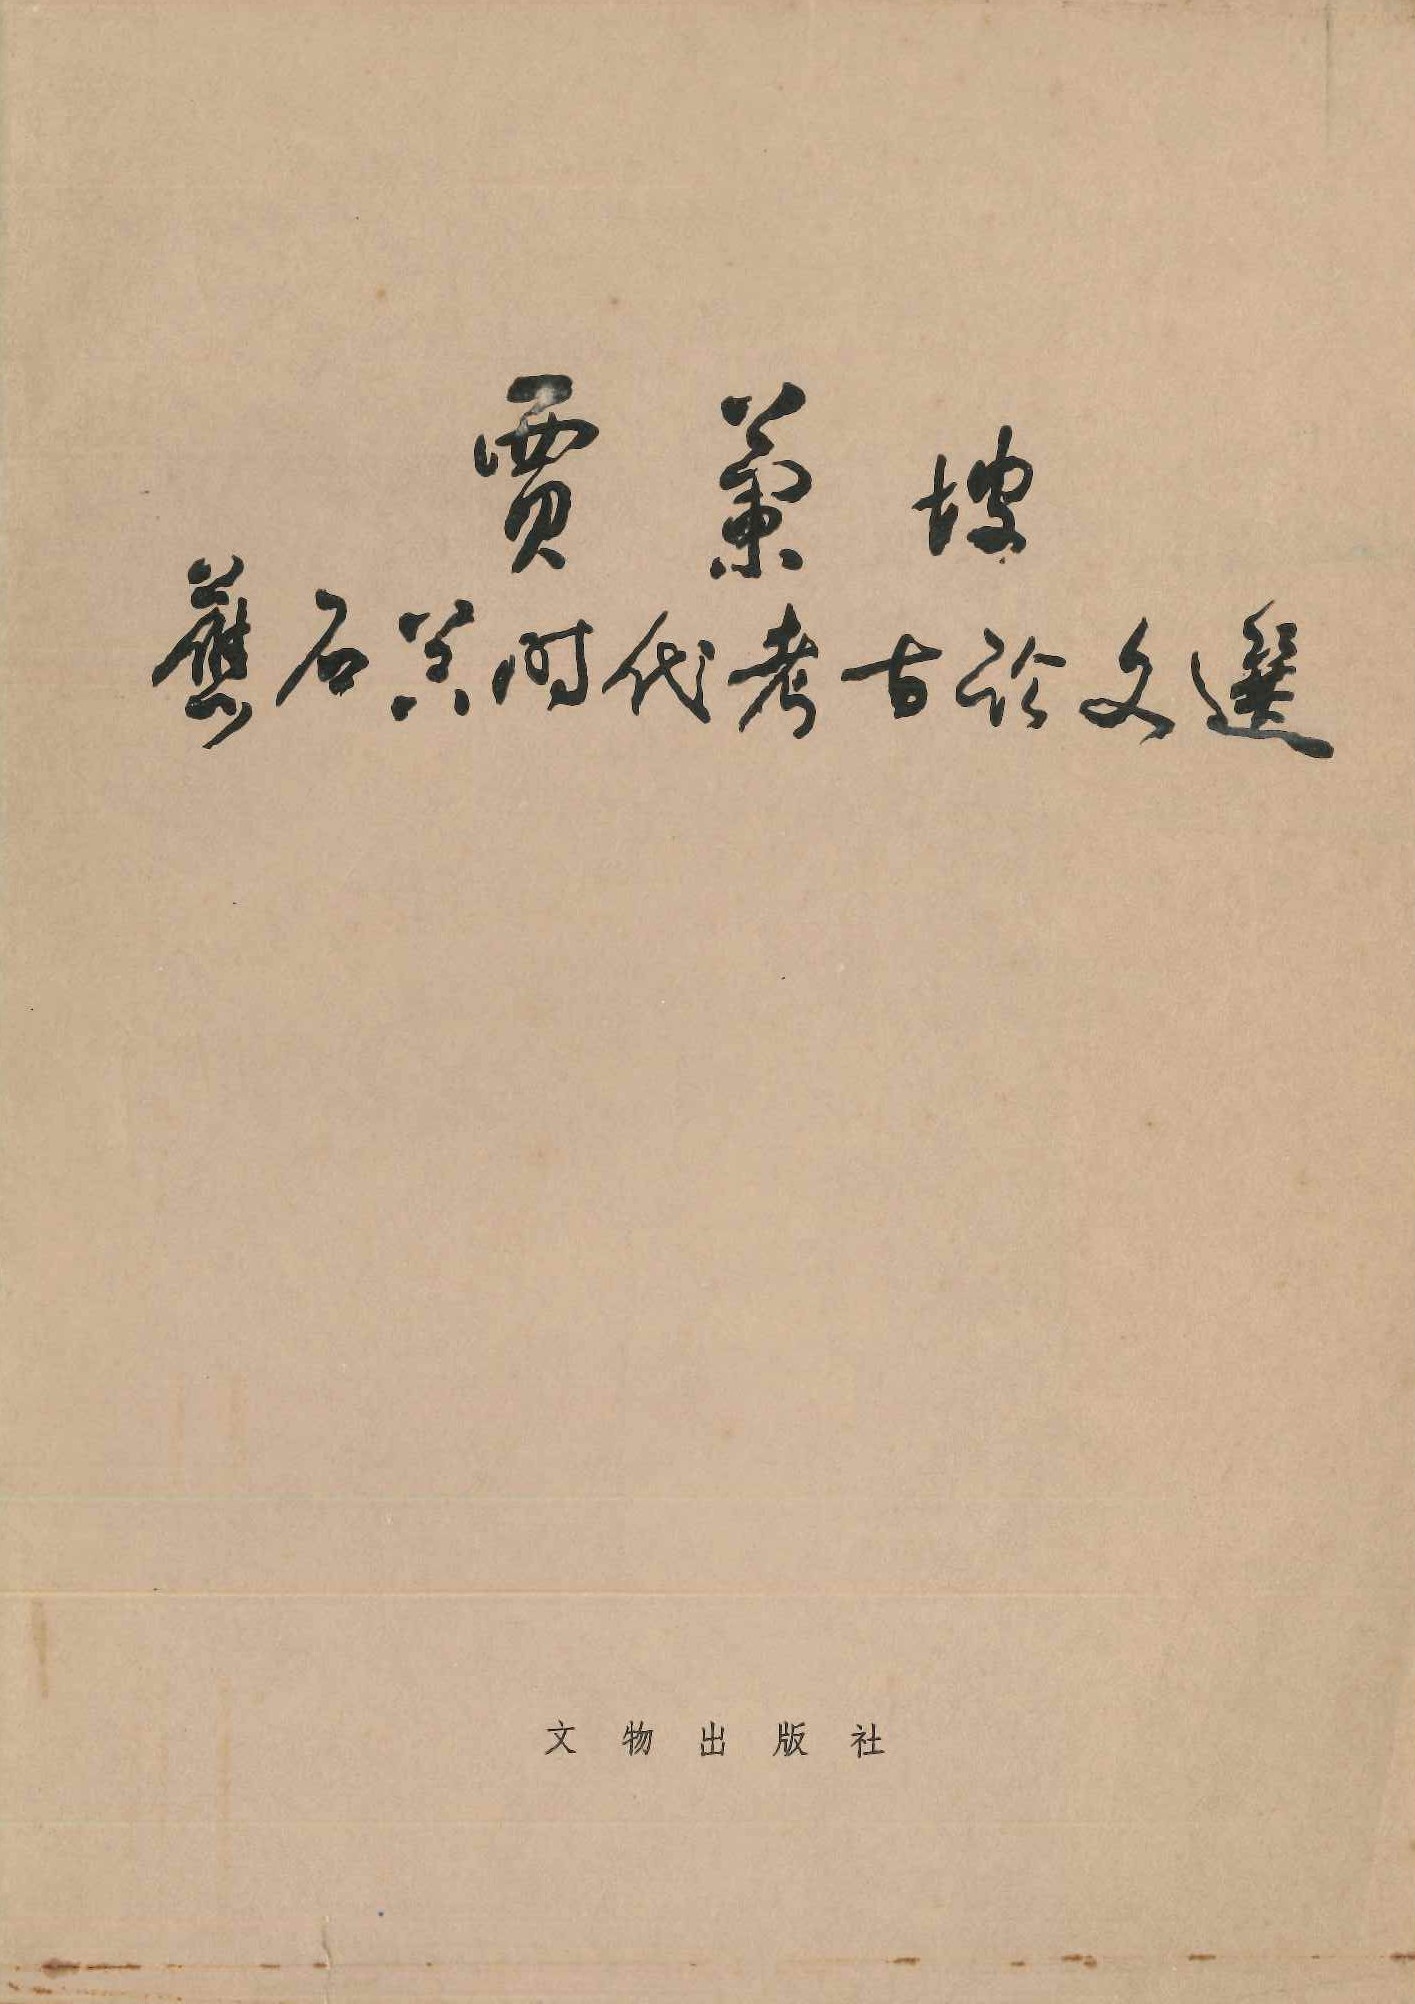 贾蘭坡
舊石器时代考古论文選
文物出版社